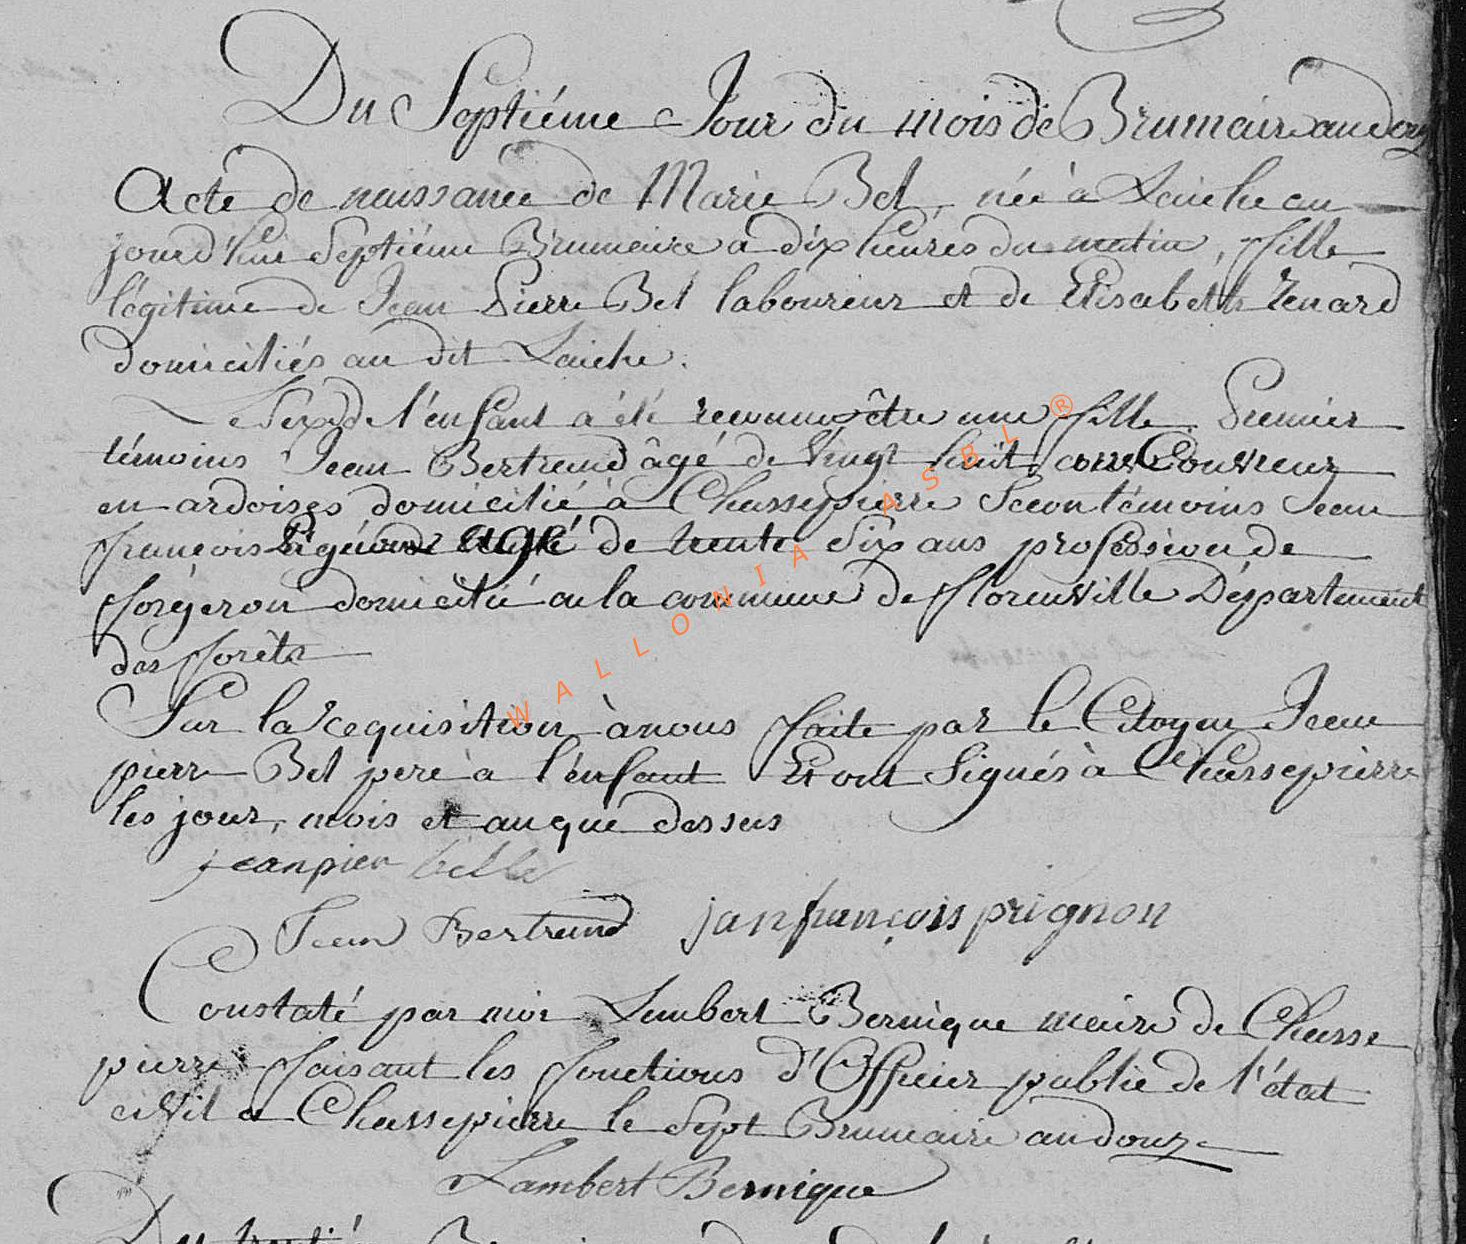 Du Septiéme Jour du mois de Brumaire an douz
Acte de naissance de Marie Bel, née à Laiche au
jourd'hui Septiéme Brumaire a dix heures du matin, fille
légitime de Jean Pierre Bel laboureur et de Elisabeth Renard
domiciliés au dit Laiche.
Le Sexe de l'enfant a été reconnu être une fille. Premier
témoins Jean Bertrand âgé de Vingt huit Couvreur
en ardoises domicilié à Chassepierre Secon témoins Jean
françois agé de trente Six ans profession de
forgeron domicilié a la commune de florenville Département
des forêts
Sur la requisition à nous faite par le Citoyen Jean
pierre Bel pere a l'enfant Et ont Signés à Chassepierre
les jour, mois et an que dessus
jeanpier belle
Jean Bertrand janfrançois prignon
Constaté par moi Lambert Bernique maire de Chasse
pierre faisant les fonctions d'Officier public de l'état
civil a Chassepierre le Sept Brumaire an douze
Lambert Bernique
WALLONIA ASBL ®